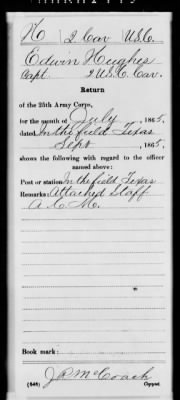 H | 2 Cav | U.S.C.
Edwin Hughes
Capt., 2 U.S.C. Cav.
Return
of the 25th Army Corps,
for the month of July, 1865,
dated In the field Texas
Sept, 1865,
shows the following with regard to the officer
named above:
Post or station In the field, Texas
Remarks: Attached Staff
A. C. M.
Book mark:
(648) J. P. McCoach
Copyist.